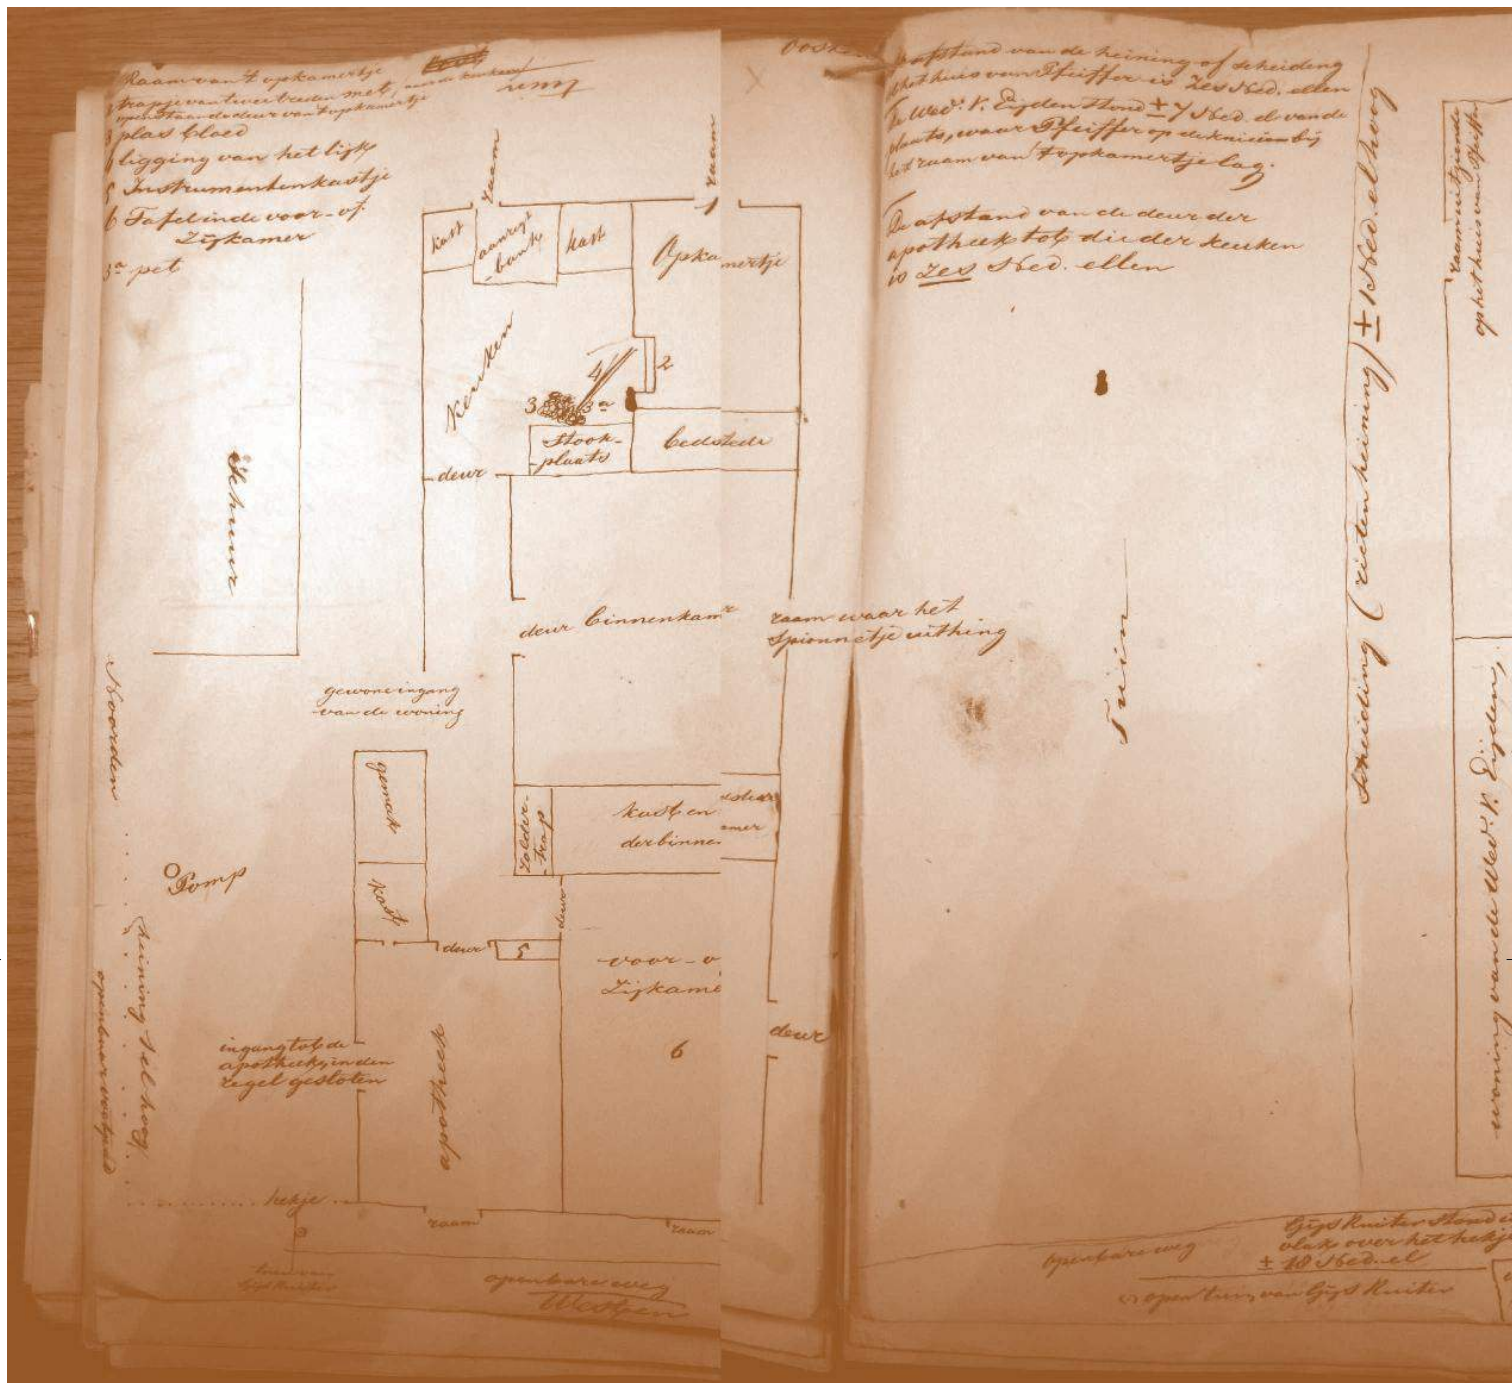 Raam van 't opkamertje
2 trapje van twee treden met, aan de keuken
openstaande deur van 't opkamertje
3 plas bloed
4 ligging van het lijk
5 Instrumentenkastje
6 Tafel in de voor- of
Zijkamer
3a pet
tuin
raam
raam
1
kast
aanregt
-bank
kast
Opkamertje
keuken
4
2
3
3a
stook-
plaats
bedstede
deur
Schuur
deur binnenkamr
raam waar het
spionnetje uithing
gewone ingang
van de woning
Noorden
gemak
kast
zolder-
trap
kast en
bedstede
der binne
kamer
Pomp
deur
deur
5
voor- o
Zijkame
6
deur
heining 1 el hoog
openbaar voetpad
ingang tot de
apotheek, in den
regel gesloten
apotheek
hekje
raam
raam
Gijs Ruiter
openbare weg
Westen
Oosten
afstand van de heining of scheiding
het huis van Pfeiffer is Zes Ned. ellen
De Wed: V. Eijden stond ± 7 Ned. el van de
plaats, waar Pfeiffer op de knieën bij
het raam van 't opkamertje lag.
De afstand van de deur der
apotheek tot die der keuken
is Zes Ned. ellen
Tuin
Scheiding (rieten heining) ± 1 Ned. el hoog
raam uitziende
op het huis van Pfeiffer
woning van de Wed: V. Eijden
openbare weg
Gijs Ruiter stond
vlak over het hekje
± 18 Ned. el
open tuin van Gijs Ruiter